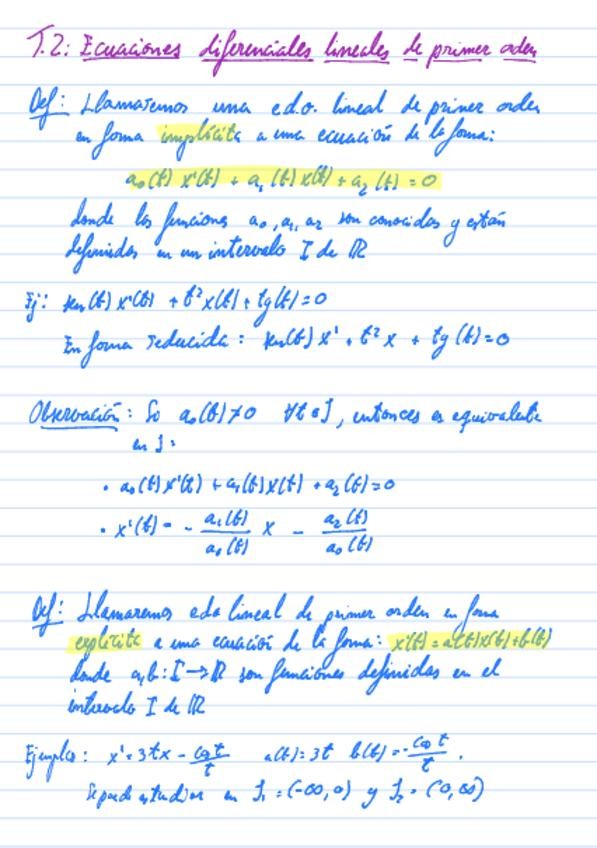 T.2: Ecuaciones diferenciales lineales de primer orden
Def: Llamaremos una e.d.o. lineal de primer orden
en forma implícita a una ecuación de la forma:
a₀(t) x'(t) + a₁(t) x(t) + a₂(t) = 0
donde las funciones a₀, a₁, a₂ son conocidas y están
definidas en un intervalo I de ℝ
Ej: sen(t) x'(t) + t² x(t) + tg(t) = 0
En forma reducida: sen(t) x' + t² x + tg(t) = 0
Observación: Si a₀(t) ≠ 0 ∀t ∈ J, entonces es equivalente
en J:
• a₀(t) x'(t) + a₁(t) x(t) + a₂(t) = 0
• x'(t) = - a₁(t)/a₀(t) x - a₂(t)/a₀(t)
Def: Llamaremos edo lineal de primer orden en forma
explícita a una ecuación de la forma: x'(t) = a(t)x(t) + b(t)
donde a, b: I → ℝ son funciones definidas en el
intervalo I de ℝ
Ejemplo: x' = 3tx - cos t/t a(t) = 3t b(t) = - cos t/t .
Se puede estudiar en J₁ = (-∞, 0) y J₂ = (0, ∞)